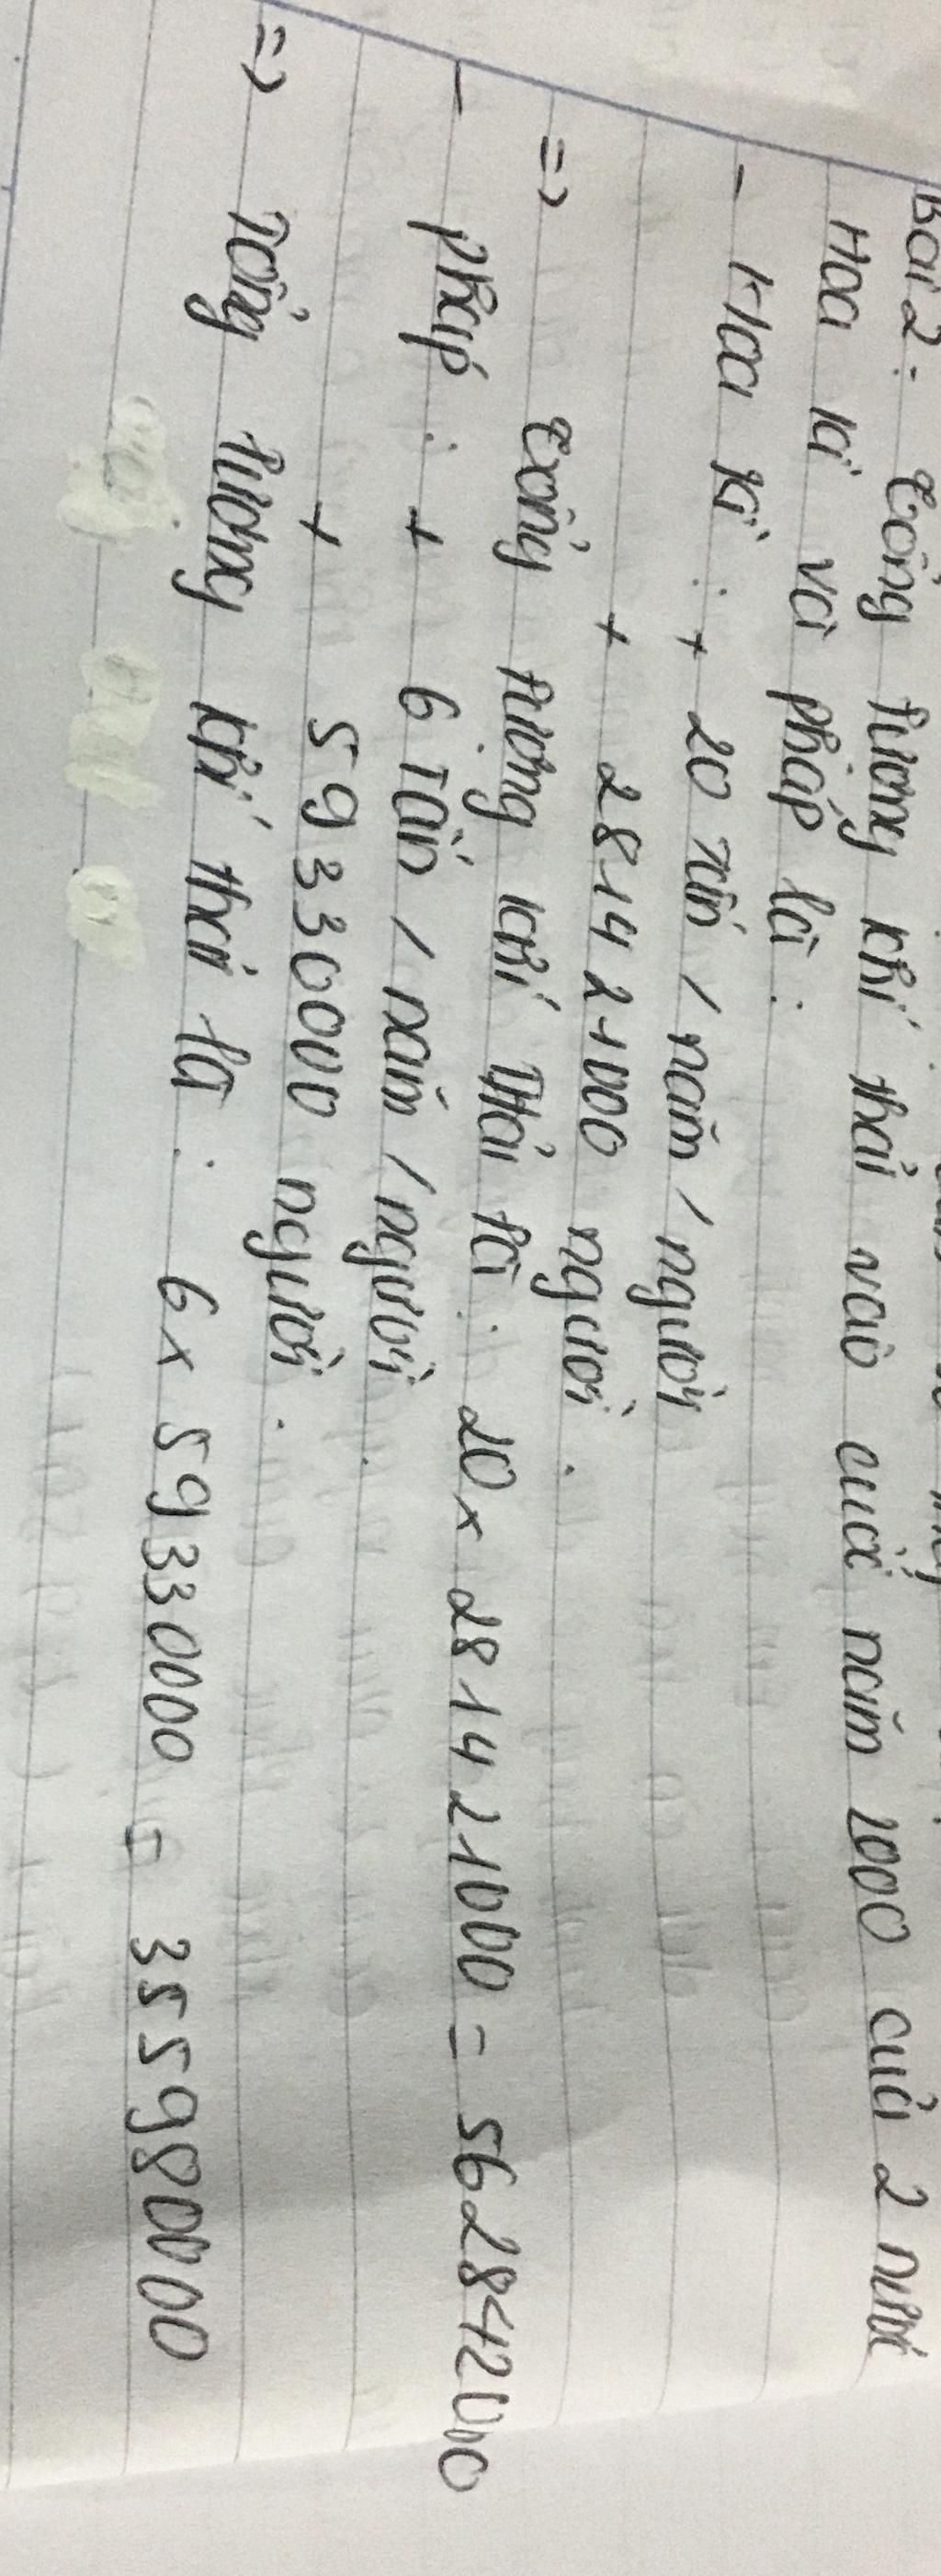 Bài 2: Tổng lượng khí thải vào cuối năm 2000 của 2 nước
Hoa kì và Pháp là:
- Hoa kì: + 20 tấn / năm / người
+ 281421000 người.
=> Tổng lượng khí thải là: 20 x 281421000 = 5628420000
- Pháp: + 6 Tấn / năm / người
+ 59330000 người.
=> Tổng lượng khí thải là: 6 x 59330000 = 355980000